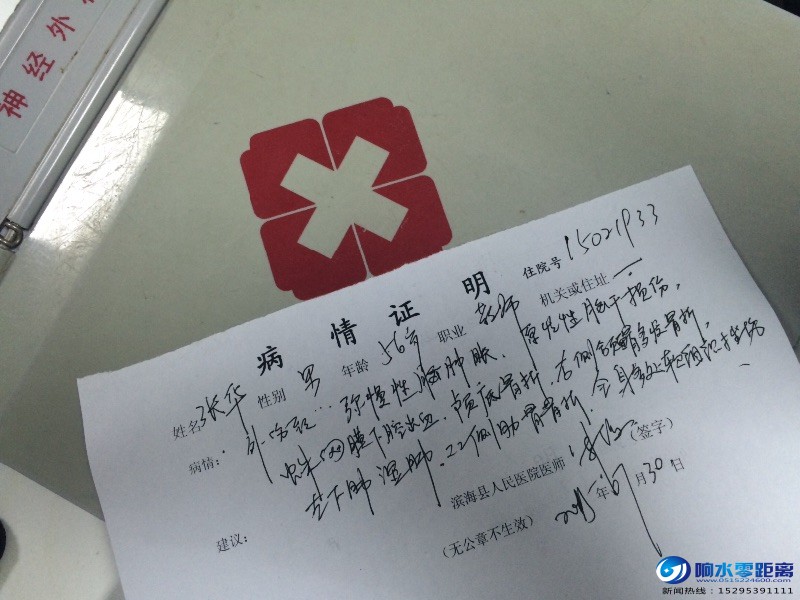 神经外
病情证明
住院号 15021933
姓名 张华 性别 男 年龄 56岁 职业 教师 机关或住址 一
病情: 外伤致: 弥慢性脑肿胀、原发性脑干损伤,
蛛网膜下腔出血、颅底骨折、右侧骨折,
左下肺湿肺、双侧肋骨骨折、全身多处软组织挫伤
滨海县人民医院医师 (签字)
建议:
(无公章不生效) 2015年6月30日
响水零距离
www.0515224600.com
新闻热线:15295391111